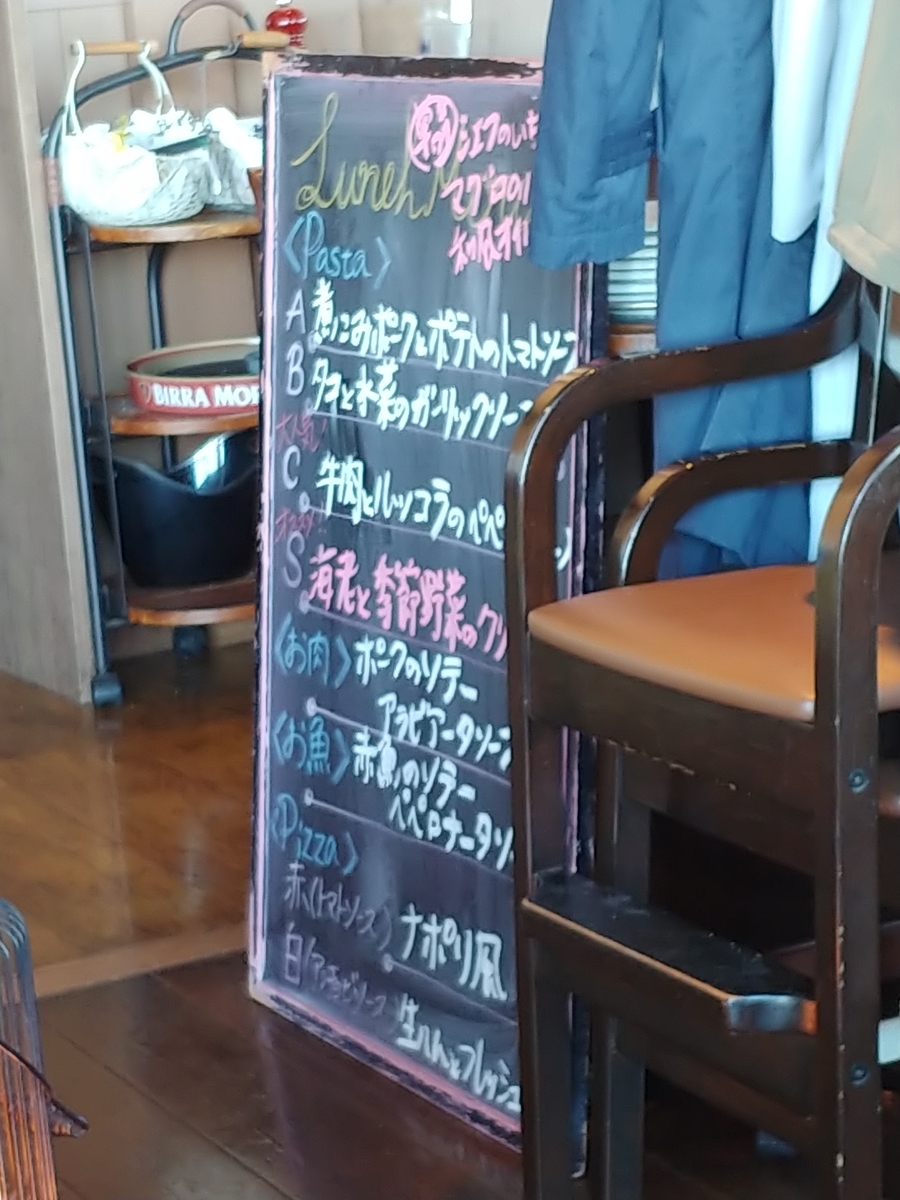 Lunch M
シェフのいち
マグロの
〈Pasta〉
A 煮こみポークとポテトのトマトソー
B タコと水菜のガーリックソー
大人気!
C 牛肉とルッコラのペペ
オススメ!
S 海老と季節野菜のクリ
〈お肉〉ポークのソテー
アラビアータソー
〈お魚〉赤魚のソテー
ペペロナータソ
〈Pizza〉
赤(トマトソース) ナポリ風
白 ソース 生ハムとフレッシュ
BIRRA MOR